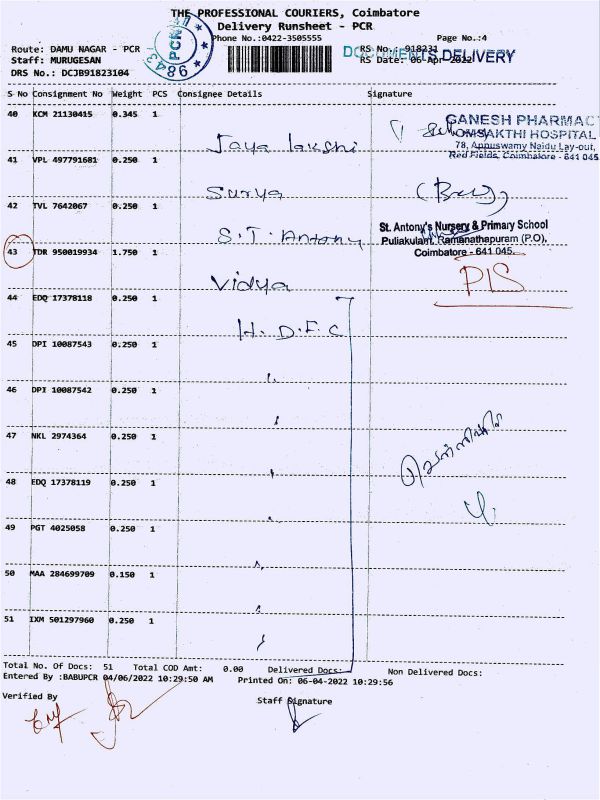 THE PROFESSIONAL COURIERS, Coimbatore
Delivery Runsheet - PCR
Phone No.:0422-3505555 Page No.:4
Route: DAMU NAGAR - PCR RS No.: 918231
Staff: MURUGESAN RS Date: 06-Apr-2022
DOCUMENTS DELIVERY
DRS No.: DCJB91823104
PCR
9843
S No Consignment No Weight PCS Consignee Details Signature
40 KCM 21130415 0.345 1 Jaya lakshi
GANESH PHARMAC
OMSAKTHI HOSPITAL
78, Annuswamy Naidu Lay-out,
Red Fields, Coimbatore - 641 045
41 VPL 497791681 0.250 1 Surya
42 TVL 7642067 0.250 1 S.T. Antony
St. Antony's Nursery & Primary School
Puliakulam, Ramanathapuram (P.O),
Coimbatore - 641 045.
43 TDR 950019934 1.750 1 Vidya
44 EDQ 17378118 0.250 1 H.D.F.C
45 DPI 10087543 0.250 1
46 DPI 10087542 0.250 1
47 NKL 2974364 0.250 1
48 EDQ 17378119 0.250 1
49 PGT 4025058 0.250 1
50 MAA 284699709 0.150 1
51 IXM 501297960 0.250 1
Total No. Of Docs: 51 Total COD Amt: 0.00 Delivered Docs: Non Delivered Docs:
Entered By :BABUPCR 04/06/2022 10:29:50 AM Printed On: 06-04-2022 10:29:56
Verified By Staff Signature